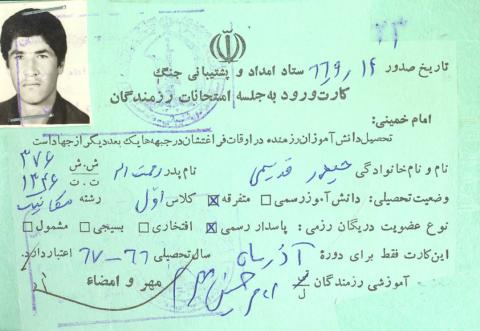 ۲۳
تاریخ صدور ۶۶۹٫۱۴ ستاد امداد و پشتیبانی جنگ
کارت ورود به جلسه امتحانات رزمندگان
امام خمینی:
تحصیل دانش آموزان رزمنده در اوقات فراغتشان در جبهه ها یک بعد دیگر از جهاد است
نام و نام خانوادگی حیدر قدیمی نام پدر رحمت اله ش.ش ۳۷۶
ت.ت ۱۳۴۶
وضعیت تحصیلی: دانش آموز رسمی □ متفرقه ☒ کلاس اول رشته مکانیک
نوع عضویت در یگان رزمی: پاسدار رسمی ☒ افتخاری □ بسیجی □ مشمول □
این کارت فقط برای دورهٔ آذر ماه سال تحصیلی ۶۶-۶۷ اعتبار دارد.
آموزشی رزمندگان مهر و امضاء